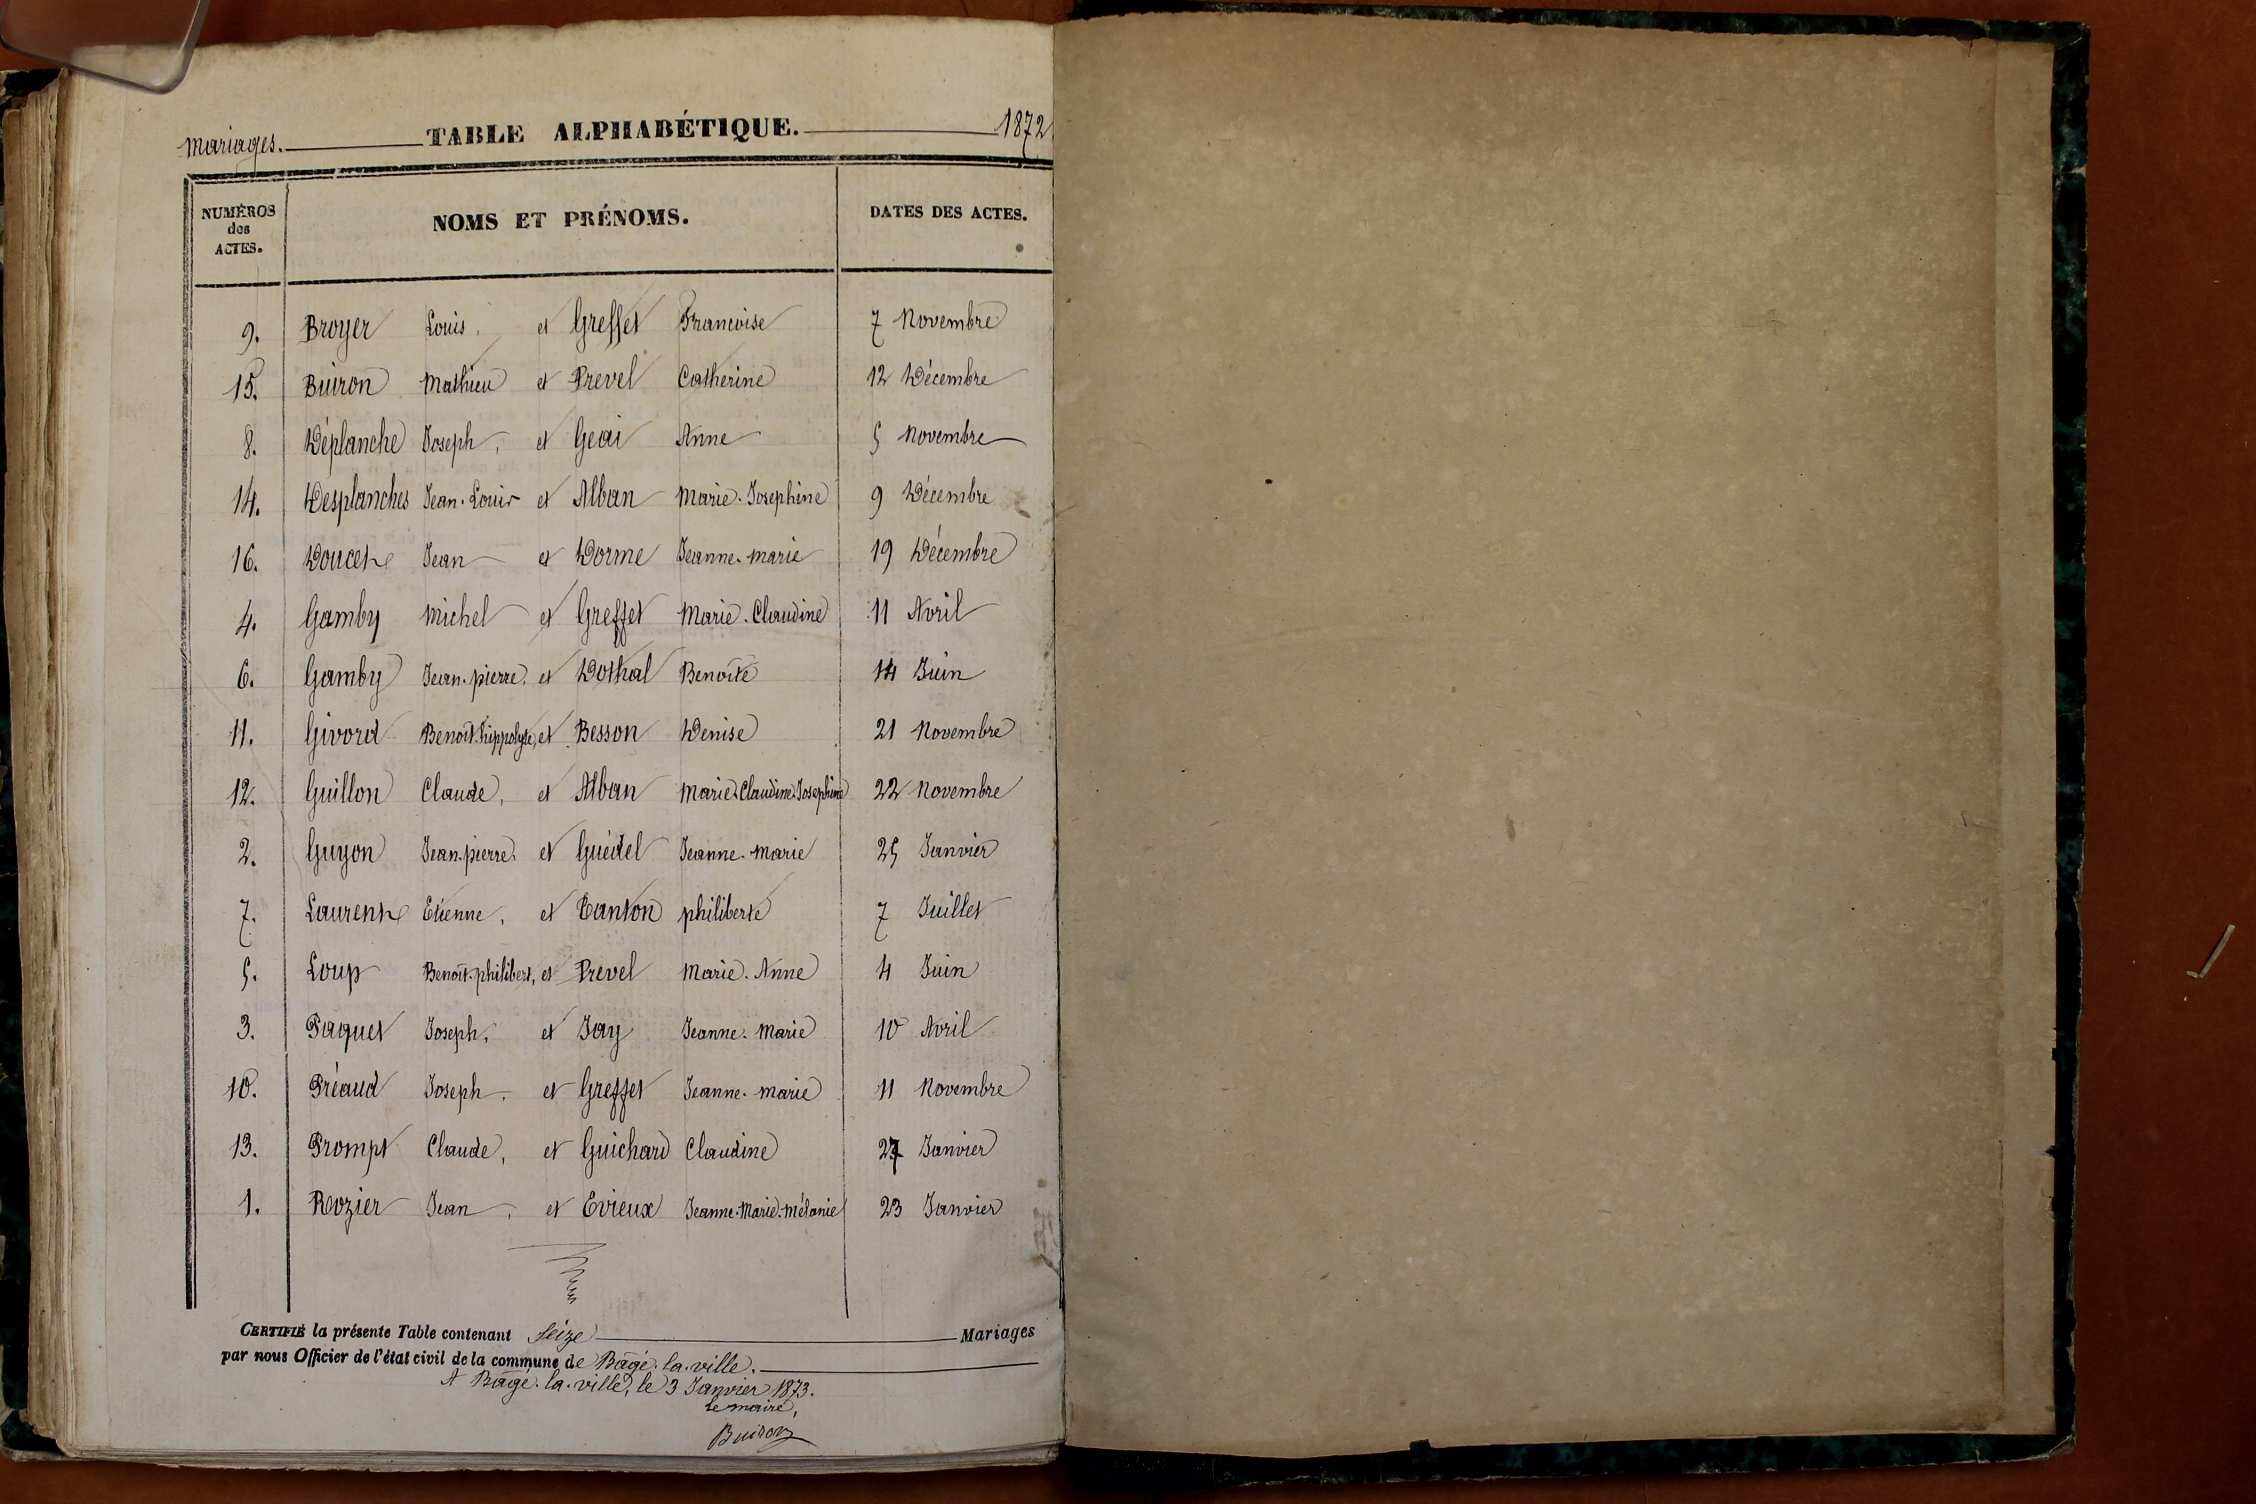 Mariages. TABLE ALPHABÉTIQUE. 1872
NUMÉROS des ACTES. NOMS ET PRÉNOMS. DATES DES ACTES.
9. Broyer Louis, et Greffet Francoise 7 Novembre
15. Buiron Mathieu et Prevel Catherine 12 Décembre
8. Déplanche Joseph, et Geai Anne 5 Novembre
14. Desplanches Jean-Louis et Alban Marie-Josephine 9 Décembre
16. Doucet Jean et Dorme Jeanne-Marie 19 Décembre
4. Gamby Michel et Greffet Marie-Claudine 11 Avril
6. Gamby Jean-pierre, et Dothal Benoite 14 Juin
11. Givord Benoît-hippolyte, et Besson Denise 21 Novembre
12. Guillon Claude, et Alban Marie-Claudine-Josephine 22 Novembre
2. Guyon Jean-pierre, et Guédel Jeanne-Marie 25 Janvier
7. Laurent Etienne, et Tanton philiberte 7 Juillet
5. Loup Benoît-philibert, et Prevel Marie-Anne 4 Juin
3. Paquet Joseph, et Jay Jeanne-Marie 10 Avril
10. Préaud Joseph, et Greffet Jeanne-Marie 11 Novembre
13. Prompt Claude, et Guichard Claudine 27 Janvier
1. Rozier Jean, et Evieux Jeanne-Marie-Mélanie 23 Janvier
CERTIFIÉ la présente Table contenant Seize Mariages
par nous Officier de l'état civil de la commune de Bagé-la-ville.
A Bagé-la-ville, le 3 Janvier 1873.
Le maire,
Buiron